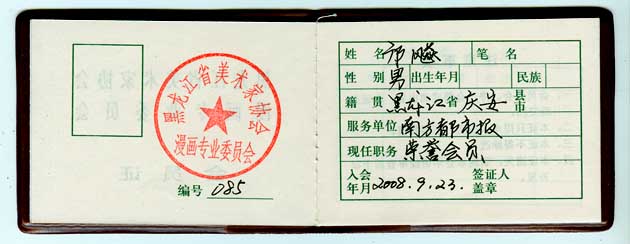 黑龙江省美术家协会
漫画专业委员会
编号 085
姓名 邝飚 笔名
性别 男 出生年月 民族
籍贯 黑龙江省 庆安 县市
服务单位 南方都市报
现任职务 荣誉会员
入会年月 2008.9.23. 签证人盖章